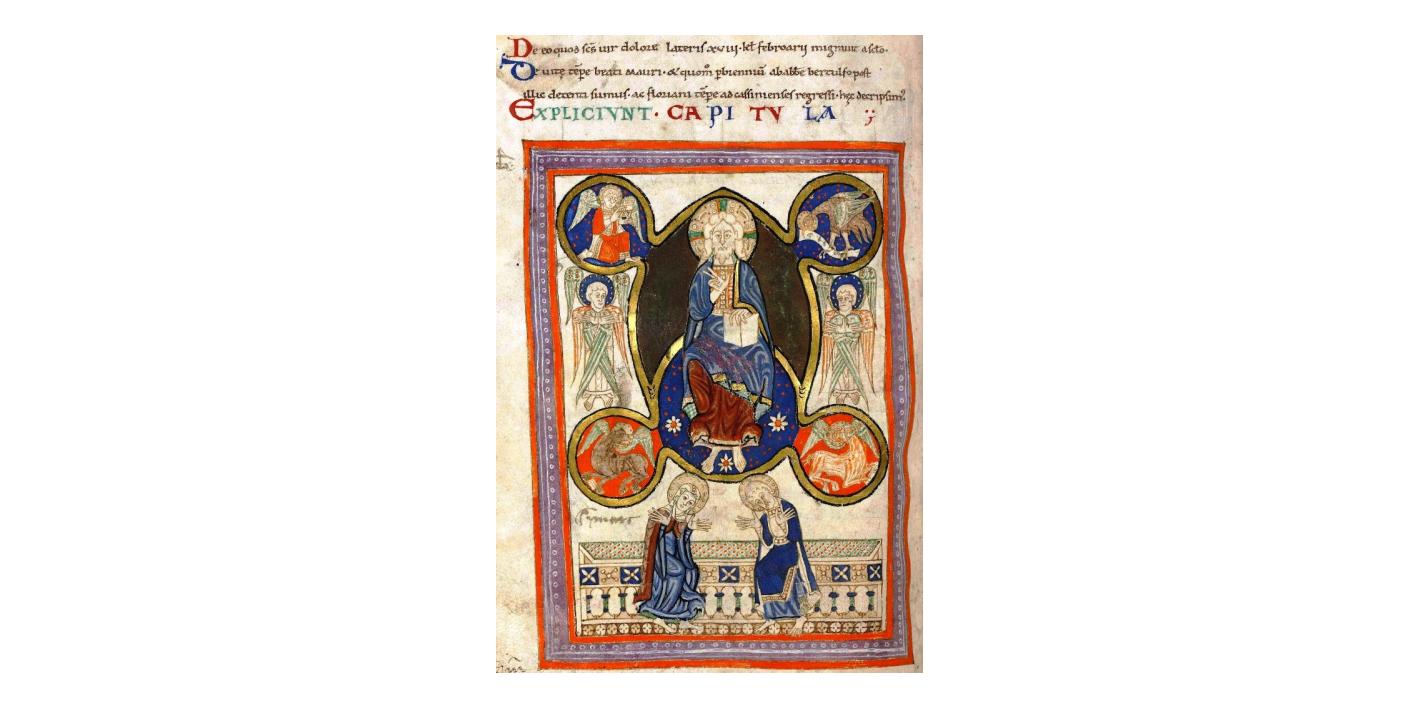 De eo quod scs uir dolore lateris xviii · kl februarii migrauit a sclo.
De uite tepe beati mauri · & quom p bienniu ab abbe bertulfo post
illic detenti sumus · ac floriani tepe ad cassinenses regressi · hec decripsim'.
EXPLICIUNT · CAPITULA